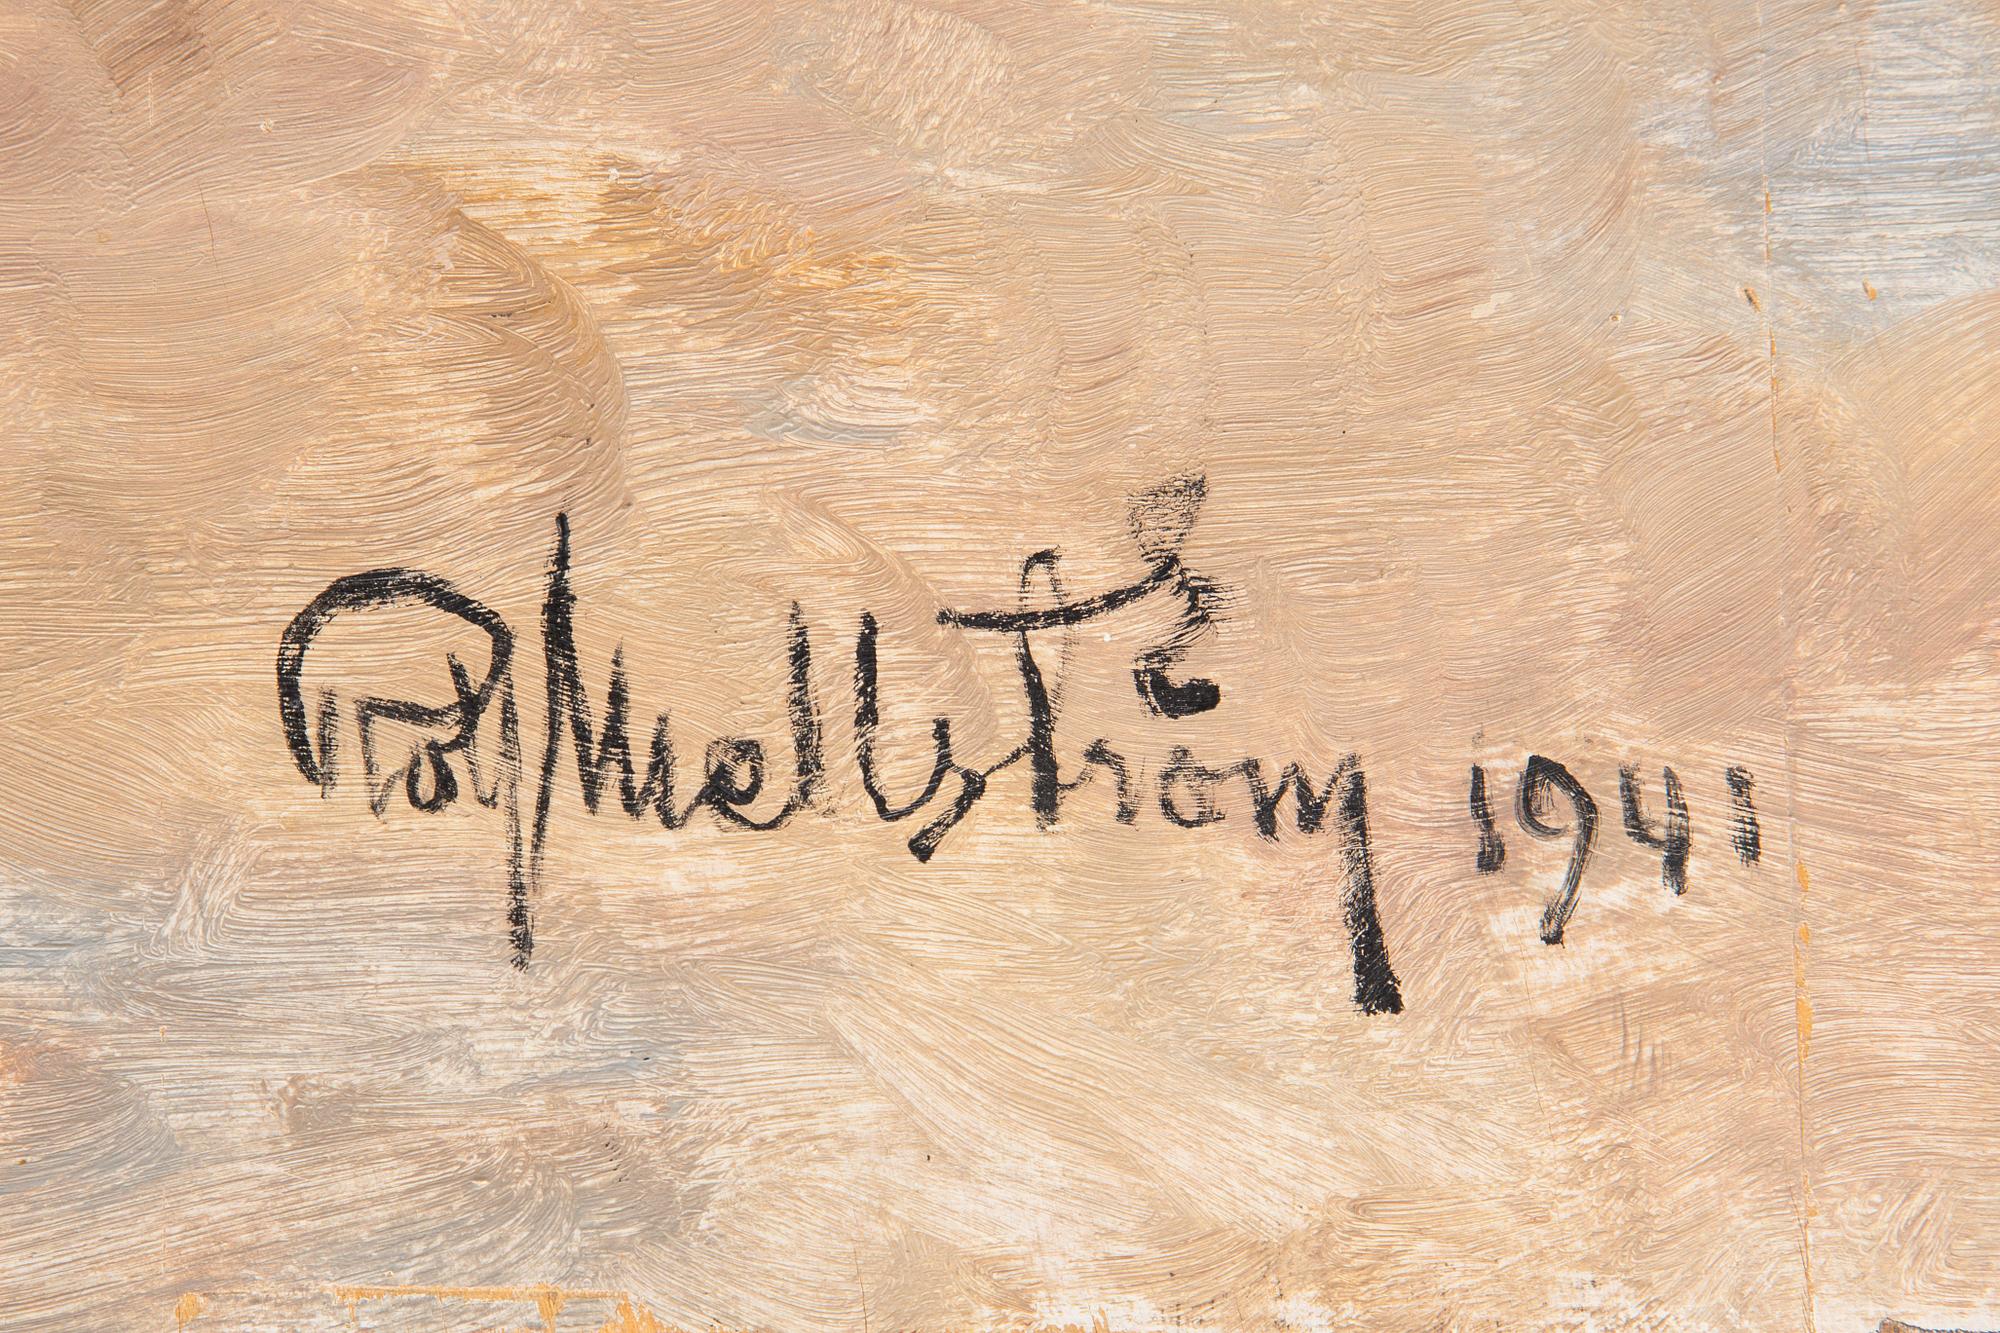 Rolf Mellström 1941